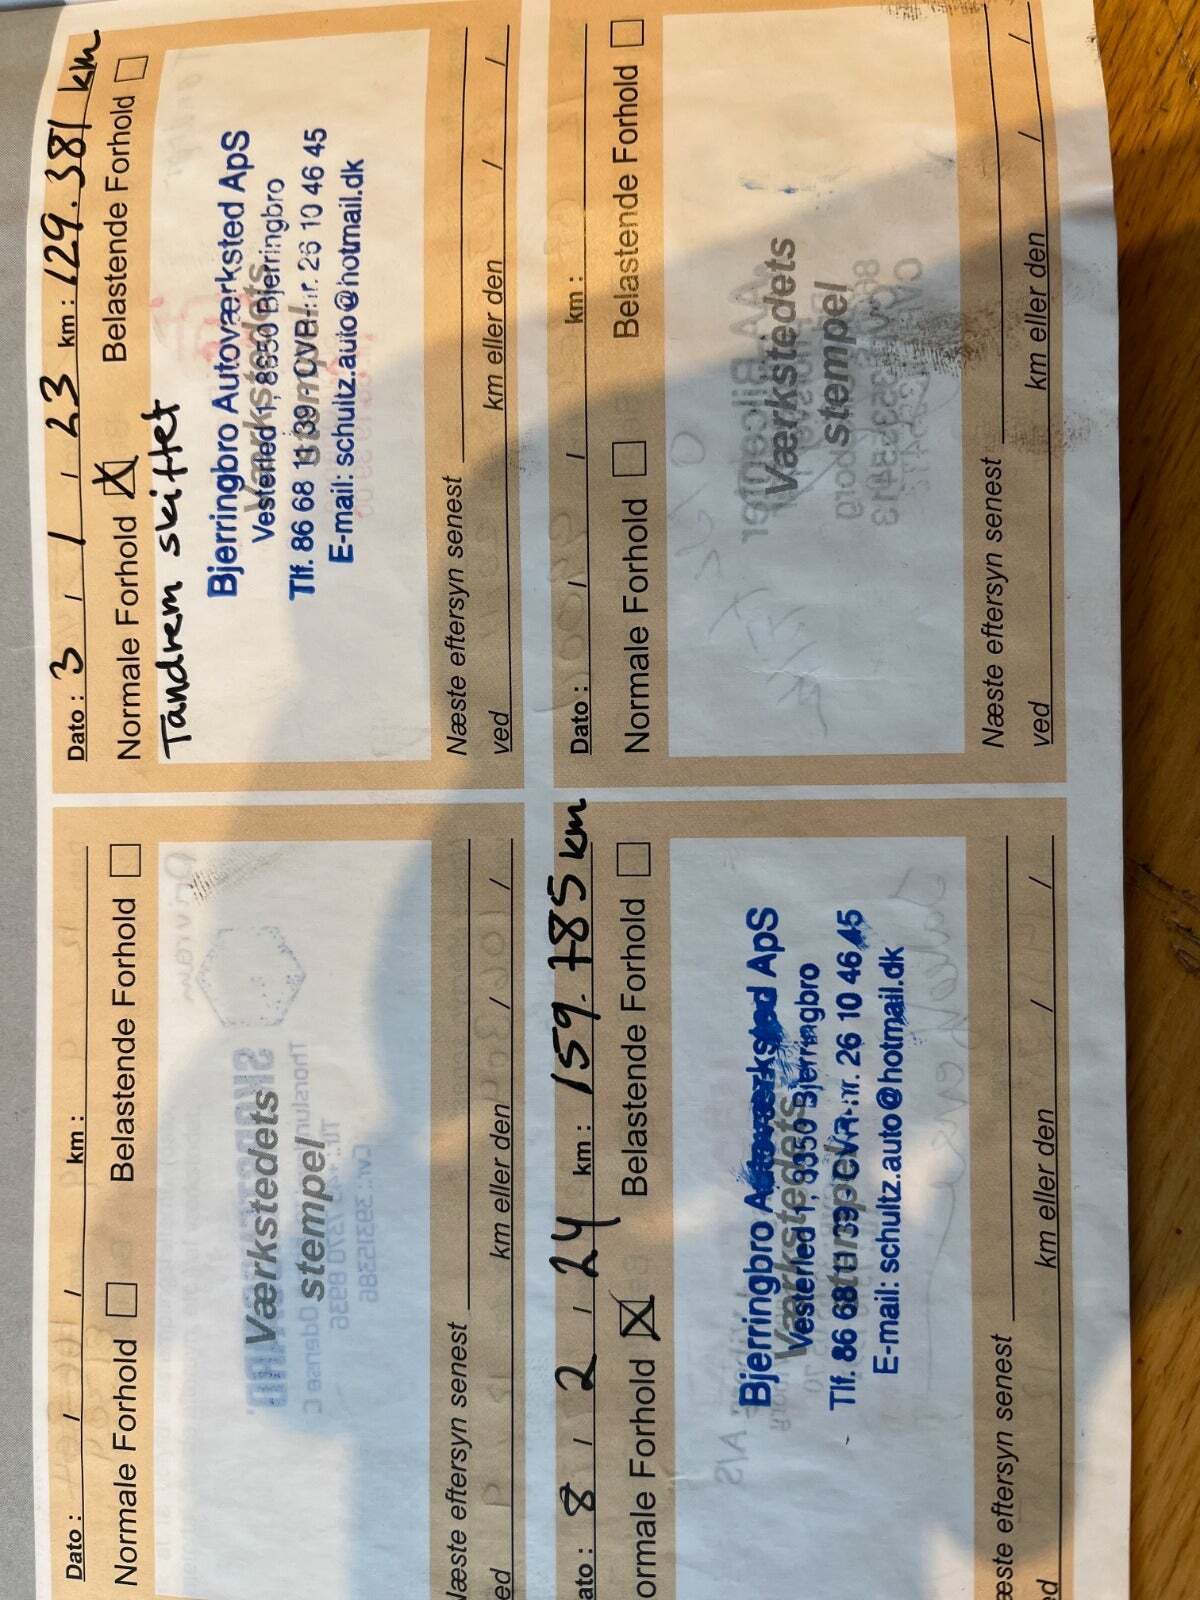 Dato: / / km:
Normale Forhold Belastende Forhold
Værkstedets
stempel
Næste eftersyn senest
ed km eller den / /
Dato: 3 / 1 / 23 km: 129.381 km
Normale Forhold X Belastende Forhold
Tandrem skiftet
Bjerringbro Autoværksted ApS
Værkstedets
Vesterled 1, 8850 Bjerringbro
stempel
Tlf. 86 68 11 39 - CVR-nr. 26 10 46 45
E-mail: schultz.auto@hotmail.dk
Næste eftersyn senest
ved km eller den / /
ato: 8 / 2 / 24 km: 159.785 km
ormale Forhold X Belastende Forhold
Bjerringbro Autoværksted ApS
Værkstedets
Vesterled 1, 8850 Bjerringbro
stempel
Tlf. 86 68 11 39 - CVR-nr. 26 10 46 45
E-mail: schultz.auto@hotmail.dk
æste eftersyn senest
ed km eller den / /
Dato: / / km:
Normale Forhold Belastende Forhold
Værkstedets
stempel
Næste eftersyn senest
ved km eller den / /